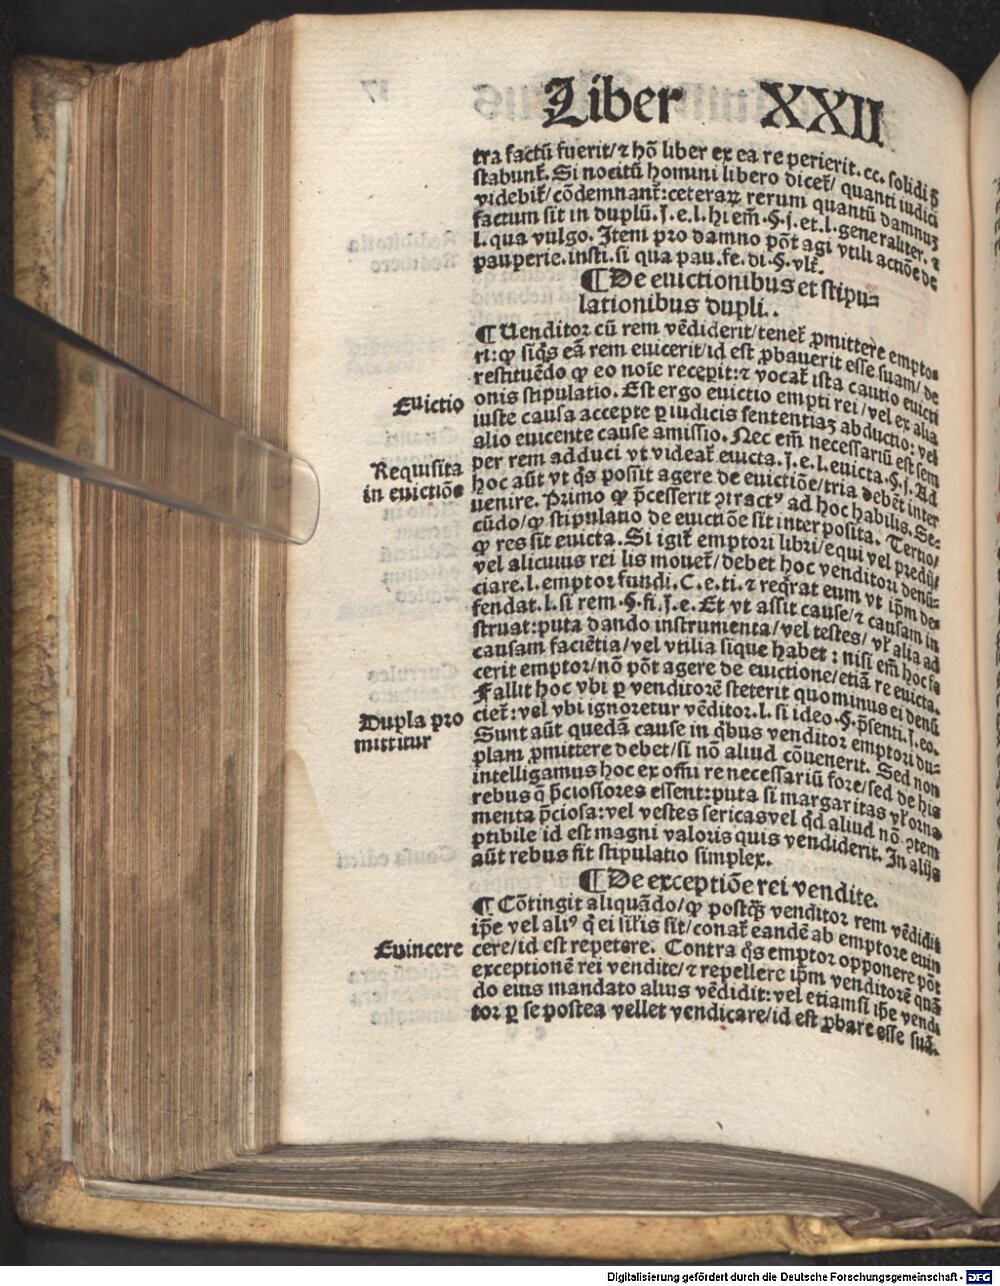 Liber XXII
tra factū fuerit/⁊ hō liber ex ea re perierit. cc. solidi p̄
stabunt᷑. Si nocitū homini libero dicet᷑/ quanti iudici
videbit᷑/ cōdemnant᷑: ceteraꝝ rerum quantū damnuꝫ
factum sit in duplū. J. e. l. hi em̄. §. j. et. l. generaliter. ⁊
l. qua vulgo. Item pro damno pōt agi vtili actiōe de
pauperie. insti. si qua pau. fe. di. §. vlt᷑.
¶ De euictionibus et stipu⸗
lationibus dupli..
¶ Uenditor cū rem vēdiderit/tenet᷑ ꝓmittere empto
ri: ꝙ siq̄s eā rem euicerit/id est ꝓbauerit esse suam/ de
restituēdo ꝙ eo noīe recepit: ⁊ vocat᷑ ista cautio euicti
onis stipulatio. Est ergo euictio empti rei/vel ex alia
Euictio
iuste causa accepte ꝑ iudicis sententiaꝫ abductio: vel
alio euicente cause amissio. Nec em̄ necessariū est sem
per rem adduci vt videat᷑ euicta. J. e. l. euicta. §. j. Ad
Requisita
in euictiōe
hoc aūt vt q̄s possit agere de euictiōe/tria debēt inter
uenire. Primo ꝙ p̄cesserit ꝯtractꝰ ad hoc habilis. Se⸗
cūdo/ꝙ stipulatio de euictiōe sit interposita. Tertio/
ꝙ res sit euicta. Si igit᷑ emptori libri/equi vel predij/
vel alicuius rei lis mouet᷑/debet hoc venditori denū⸗
ciare. l. emptor fundi. C. e. ti. ⁊ req̄rat eum vt ip̄m de⸗
fendat. l. si rem. §. fi. J. e. Et vt assit cause/⁊ causam in
struat: puta dando instrumenta/vel testes/ vl᷑ alia ad
causam faciētia/vel vtilia sique habet: nisi em̄ hoc fe
cerit emptor/nō pōt agere de euictione/etiā re euicta.
Fallit hoc vbi ꝑ venditorē steterit quominus ei denū
ciet᷑: vel vbi ignoretur vēditor. l. si ideo. §. p̄senti. J. eo.
Dupla pro
mittitur
Sunt aūt quedā cause in q̄bus venditor emptori du⸗
plam ꝓmittere debet/si nō aliud cōuenerit. Sed non
intelligamus hoc ex omī re necessariū fore/sed de his
rebus q̄ p̄ciosiores essent: puta si margaritas vl᷑ orna
menta p̄ciosa: vel vestes sericas vel q̄d aliud nō ꝯtem
ptibile id est magni valoris quis vendiderit. In alijs
aūt rebus fit stipulatio simplex.
¶ De exceptiōe rei vendite.
¶ Cōtingit aliquādo/ꝙ postq̄ȝ venditor rem vēdidit
ip̄e vel aliꝰ q̄ ei sil᷑is sit/conat᷑ eandē ab emptore euin
Euincere
cere/id est repetere. Contra q̄s emptor opponere pōt
exceptionē rei vendite/⁊ repellere ip̄m venditorē quā
do eius mandato alius vēdidit: vel etiamsi ip̄e vendi
tor ꝑ se postea vellet vendicare/id est ꝓbare esse suā.
Digitalisierung gefördert durch die Deutsche Forschungsgemeinschaft - DFG